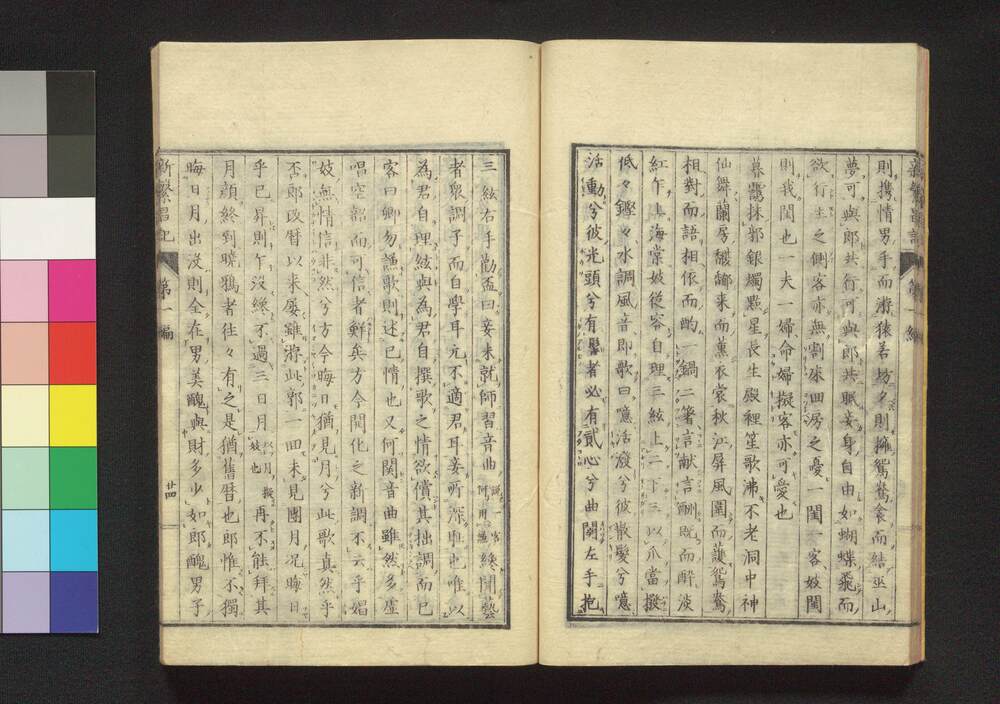 則携情男手而游猿若坊夕則擁鴛鴦衾而結巫山
夢可與郎共行可與郎共眠妾身自由如蝴蝶飛而
欲行生之側客亦無割床四房之憂一閨一客妓閨
則我閨也一夫一婦命婦擬客亦可愛也
暮靄抹郭銀燭點星長生殿裡笙歌沸不老洞中神
仙舞蘭房馥郁来而薫衣裳秋江屏風圍而護鴛鴦
相對而語相依而酌一鍋二箸言献言酬既而醉淡
紅午上海棠妓從容自理三絃上二下三以爪當撥
低々鏗々水調風音即歌曰噫活潑兮彼散髮兮噫
活動兮彼光頭兮有髷者必有貳心兮曲闋左手抱
三絃右手勸盃曰妾未就師習音曲終聞藝
者猥調子而自學耳元不適君耳妾所深耻也唯以
為君自理絃與為君自撰歌之情欲償其拙調而已
客曰卿勿謙歌則述已情也又何関音曲雖然多虚
唱空韶而可信者鮮矣方今開化之新調不云乎娼
妓無情信非然兮方今晦日猶見月兮此歌真然乎
否郎改暦以来屡雖游此郭一回未見團月况晦日
乎已昇則午没終不過三日月以月擬妓也再不能拜其
月顔終到曉鴉者往々有之是猶舊暦也郎惟不獨
晦日月出没則全在男美醜與財多少如郎醜男子
新繁昌記
第一編
廿四